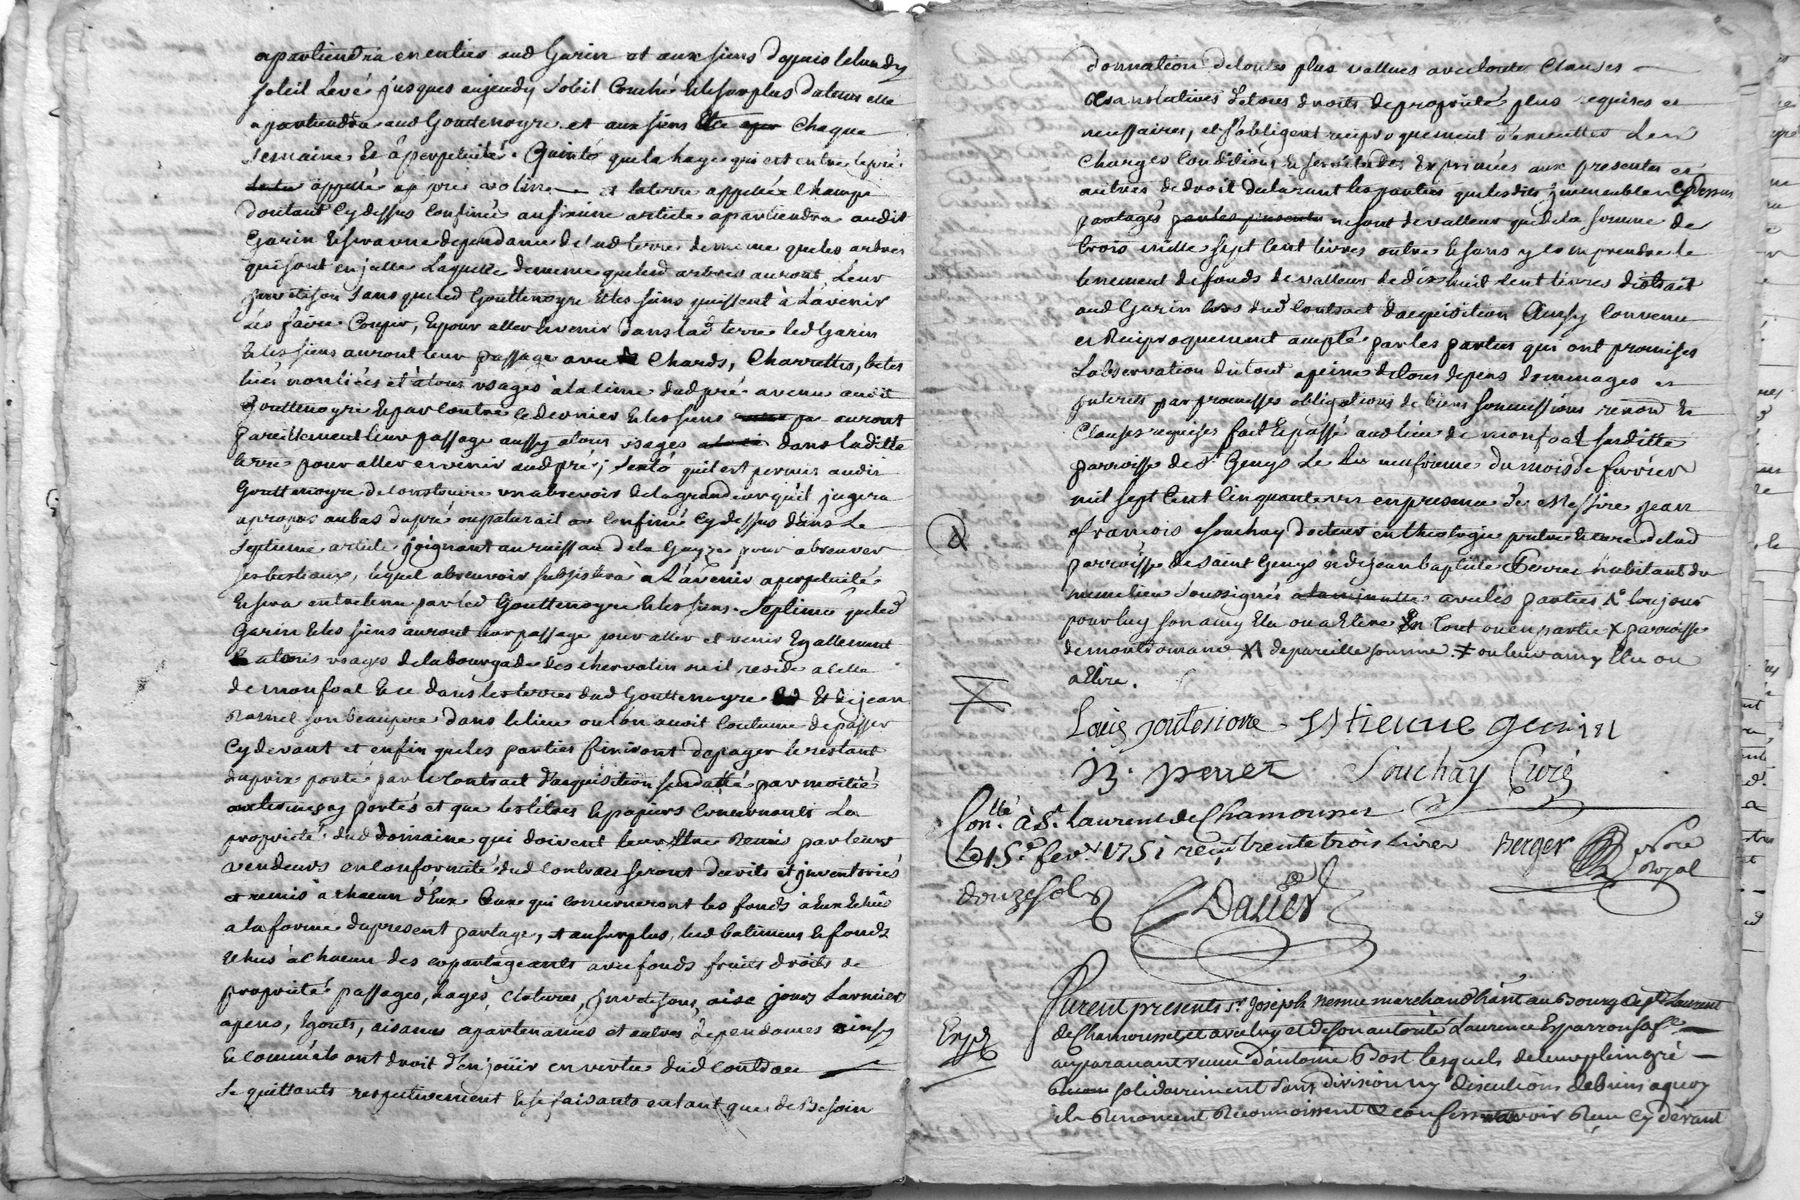 apartiendra en entier aud Garin et aux siens depuis le lundy
soleil Levé jusques au jeudy soleil Couché et le surplus du tems elle
apartiendra aud Gouttenoyre et aux siens chaque
semaine et à perpetuité. Quinto que la haye qui est entre le pré
appellé pré et la terre appellée Champ
cy dessus confiné au article apartiendra audit
Garin dependante de lad terre de meme que les arbres
qui sont en jcelle Laquelle de meme que led arbres auront Leur
sans que led Gouttenoyre et les siens puissent à L'avenir
Les faire Couper, et pour aller et venir dans lad terre led Garin
et les siens auront leur passage avec Chards, Charrettes, betes
liées non liées et à tous usages à la cime dud pré avenu audit
Gouttenoyre et par contre ce dernier et les siens auront
pareillement leur passage aussy a tous usages dans laditte
terre pour aller et venir aud pré; Sexto qu'il est permis audit
Gouttenoyre de construire un abrevoir de la grandeur qu'il jugera
apropos au bas du pré ou paturail confiné cy dessus dans Le
septieme article joignant au ruisseau de la pour abreuver
ses bestiaux, lequel abreuvoir subsistera à L'avenir a perpetuité
et sera entretenu par led Gouttenoyre et les siens. Septimo que led
Garin et les siens auront leur passage pour aller et venir
a tous usages de la bourgade des ou il reside a celle
de monfoal et ce dans les terres dud Gouttenoyre et de jean
son beaupere dans le lieu ou l'on avoit Coutume de passer
cy devant et enfin que les parties finiront de payer le restant
du prix porté par le contract d'acquisition susdatté par moitié
portés et que les titres et papiers concernants La
proprieté dud domaine qui doivent leur etre Remis par leurs
vendeurs en conformité dud contract seront decrits et jnventoriés
et remis à chacun d'Eux Ceux qui concerneront les fonds à Eux Echus
a la forme du present partage, et au surplus, led batiments et fonds
Echus à chacun des copartageants avec fonds fruits droits de
proprieté passages, hayes, clotures, aise jours Larmiers
apens, Egouts, aisances apartenances et autres dependances ainsy
et comme ils ont droit d'en joüir en vertu dud contract
se quittants respectivement et se faisants en tant que de Besoin
donnation de toutes plus vallues avec toute Clauses
translatives de tous droits de proprieté plus requises et
necessaires, et s'obligent reciproquement d'executter Les
Charges Conditions et servitudes Exprimées aux presentes et
autres de droit declarant les parties que lesdits jmmeubles cy dessus
partagés par les presentes ne sont de valleur que de la somme de
trois mille sept Cent livres outre et sans y comprendre le
tenement de fonds de valleur de dix huit Cent livres distrait
aud Garin Lors dud Contract d'acquisition Ainsy convenu
et Reciproquement accepté par les parties qui ont promises
L'observation du tout a peine de tous depens dommages et
jnterets par promesses obligations de biens soumissions renond et
Clauses requises fait et passé aud lieu de monfoal susditte
parroisse de St Genys Le neufvieme du mois de fevrier
mil sept Cent Cinquante un en presence de Messire jean
françois Souchay docteur en theologie pretre et curé delad
parroisse de saint Genys et de jean baptiste Perret habitant du
meme lieu soussignés a la minutte avec les parties toujours
pour luy son amy Elu ou a Elire En tout ou en partie x parroisse
de montromand de pareille somme ≠ ou leur amy Elu ou
a Elire.
Louis goutenoire - Etienne garin
B. perret Souchay Curé
Con.llé à St. Laurent de Chamousset
Le 15e fevr 1751 reçu trente trois livres
douze sols
Berger No.re
Royal
Davier
Expé
Furent presents sr Joseph marchand h.ant au Bourg de St Laurent
de Chamousset et avec luy et de son autorité Laurence Esparron sa fe
auparavant veuve d'antoine Bost lesquels de leur plein gré
solidairement sans division ny discutions de biens a quoy
ils Renoncent Reconnoissent & confessent avoir Reçu cy devant